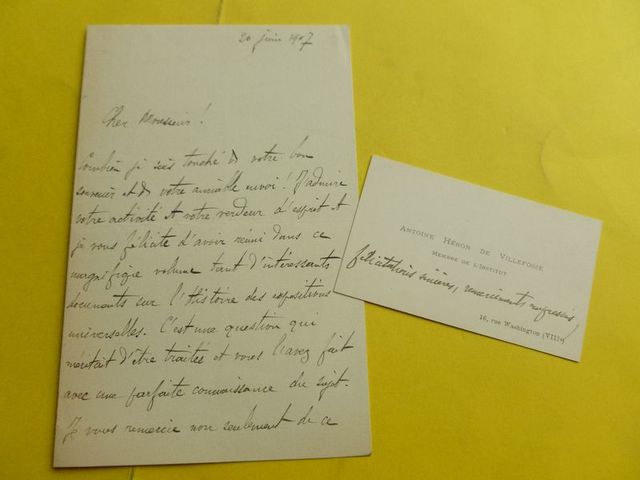 20 juin 1907
Cher Monsieur !
Combien je suis touché de votre bon
souvenir et de votre aimable envoi ! J'admire
votre activité et votre verdeur d'esprit et
je vous félicite d'avoir réuni dans ce
magnifique volume tant d'intéressants
documents sur l'Histoire des expositions
universelles. C'est une question qui
méritait d'être traitée et vous l'avez fait
avec une parfaite connaissance du sujet.
Je vous remercie non seulement de ce
ANTOINE HÉRON DE VILLEFOSSE
MEMBRE DE L'INSTITUT
félicitations sincères, remerciements empressés,
16, rue Washington (VIIIe)